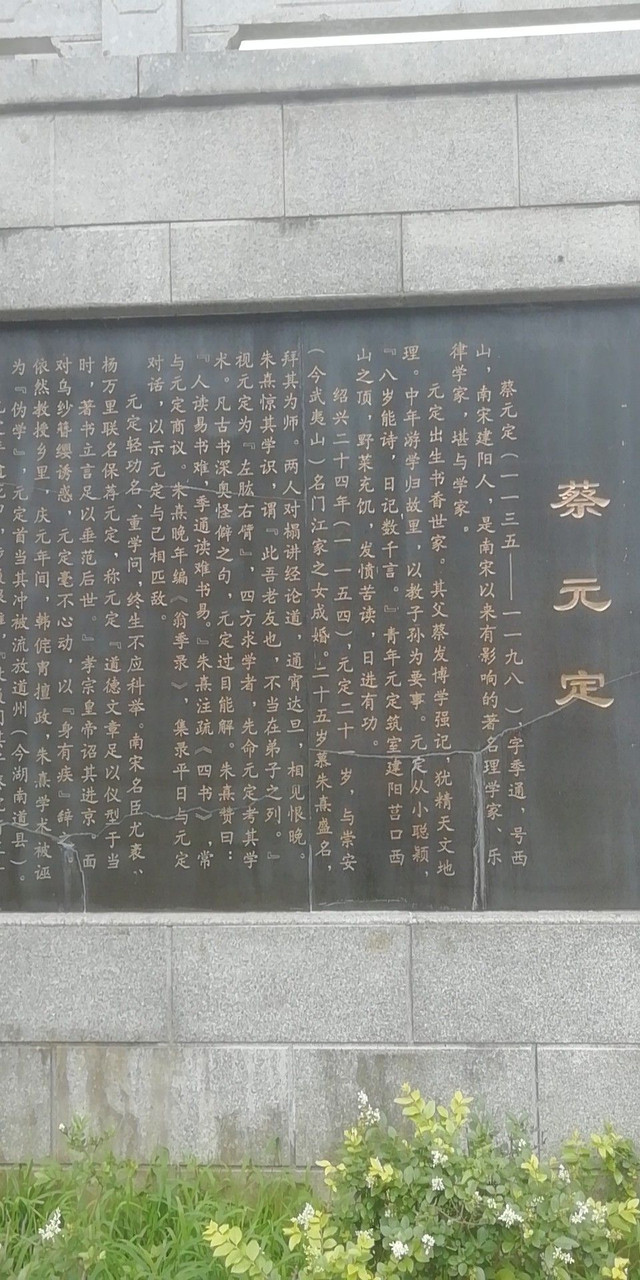 蔡元定
蔡元定（一一三五——一一九八），字季通，号西
山，南宋建阳人，是南宋以来有影响的著名理学家、乐
律学家，堪与学家。
元定出生书香世家。其父蔡发博学强记，犹精天文地
理。中年游学归故里，以教子孙为要事。元定从小聪颖，
『八岁能诗，日记数千言。』青年元定筑室建阳莒口西
山之顶，野菜充饥，发愤苦读，日进有功。
绍兴二十四年（一一五四），元定二十岁，与崇安
（今武夷山）名门江家之女成婚。二十五岁慕朱熹盛名，
拜其为师。两人对榻讲经论道，通宵达旦，相见恨晚。
朱熹惊其学识，谓『此吾老友也，不当在弟子之列。』
视元定为『左肱右臂』，四方求学者，先命元定考其学
术。凡古书深奥怪僻之句，元定过目能解。朱熹赞曰：
『人读易书难，季通读难书易。』朱熹注疏《四书》，常
与元定商议。朱熹晚年编《翁季录》，集录平日与元定
对话，以示元定与己相匹敌。
元定轻功名、重学问，终生不应科举。南宋名臣尤袤、
杨万里联名保荐元定，称元定『道德文章足以仪型于当
时，著书立言足以垂范后世。』孝宗皇帝诏其进京。面
对乌纱簪缨诱惑，元定毫不心动，以『身有疾』辞
依然教授乡里，庆元年间，韩侂胄擅政，朱熹学术被诬
为『伪学』，元定首当其冲被流放道州（今湖南道县）。